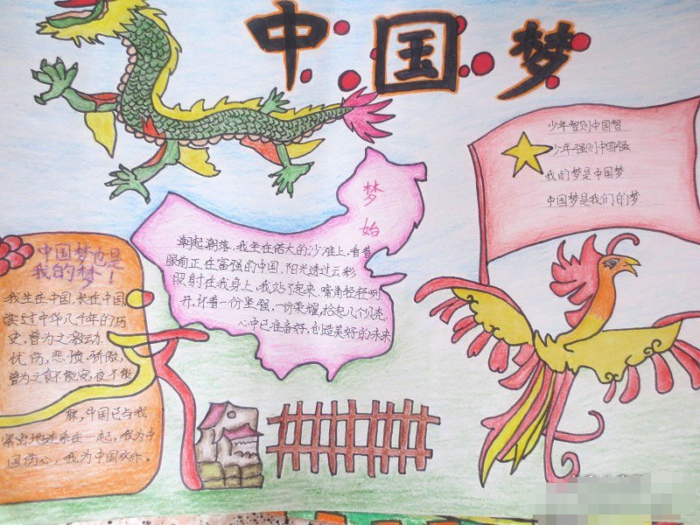 中国梦
少年智则中国智
少年强则中国强
我们梦是中国梦
中国梦是我们的梦
梦
始
潮起潮落,我坐在偌大的沙滩上,看着
眼前正在富强的中国,阳光透过云彩
照射在我身上,我站了起来,嘴角轻轻咧
开,怀着一份坚强,一份荣耀,拾起几个贝壳
心中已准备好,创造美好的未来
中国梦也是
我的梦!
我生在中国,长在中国
读过中华几千年的历
史,曾为之激动、
忧伤,悲愤、骄傲,
曾为之食不能安,夜不能
寐,中国已与我
紧密地连系在一起,我为中
国伤心,我为中国欢乐。